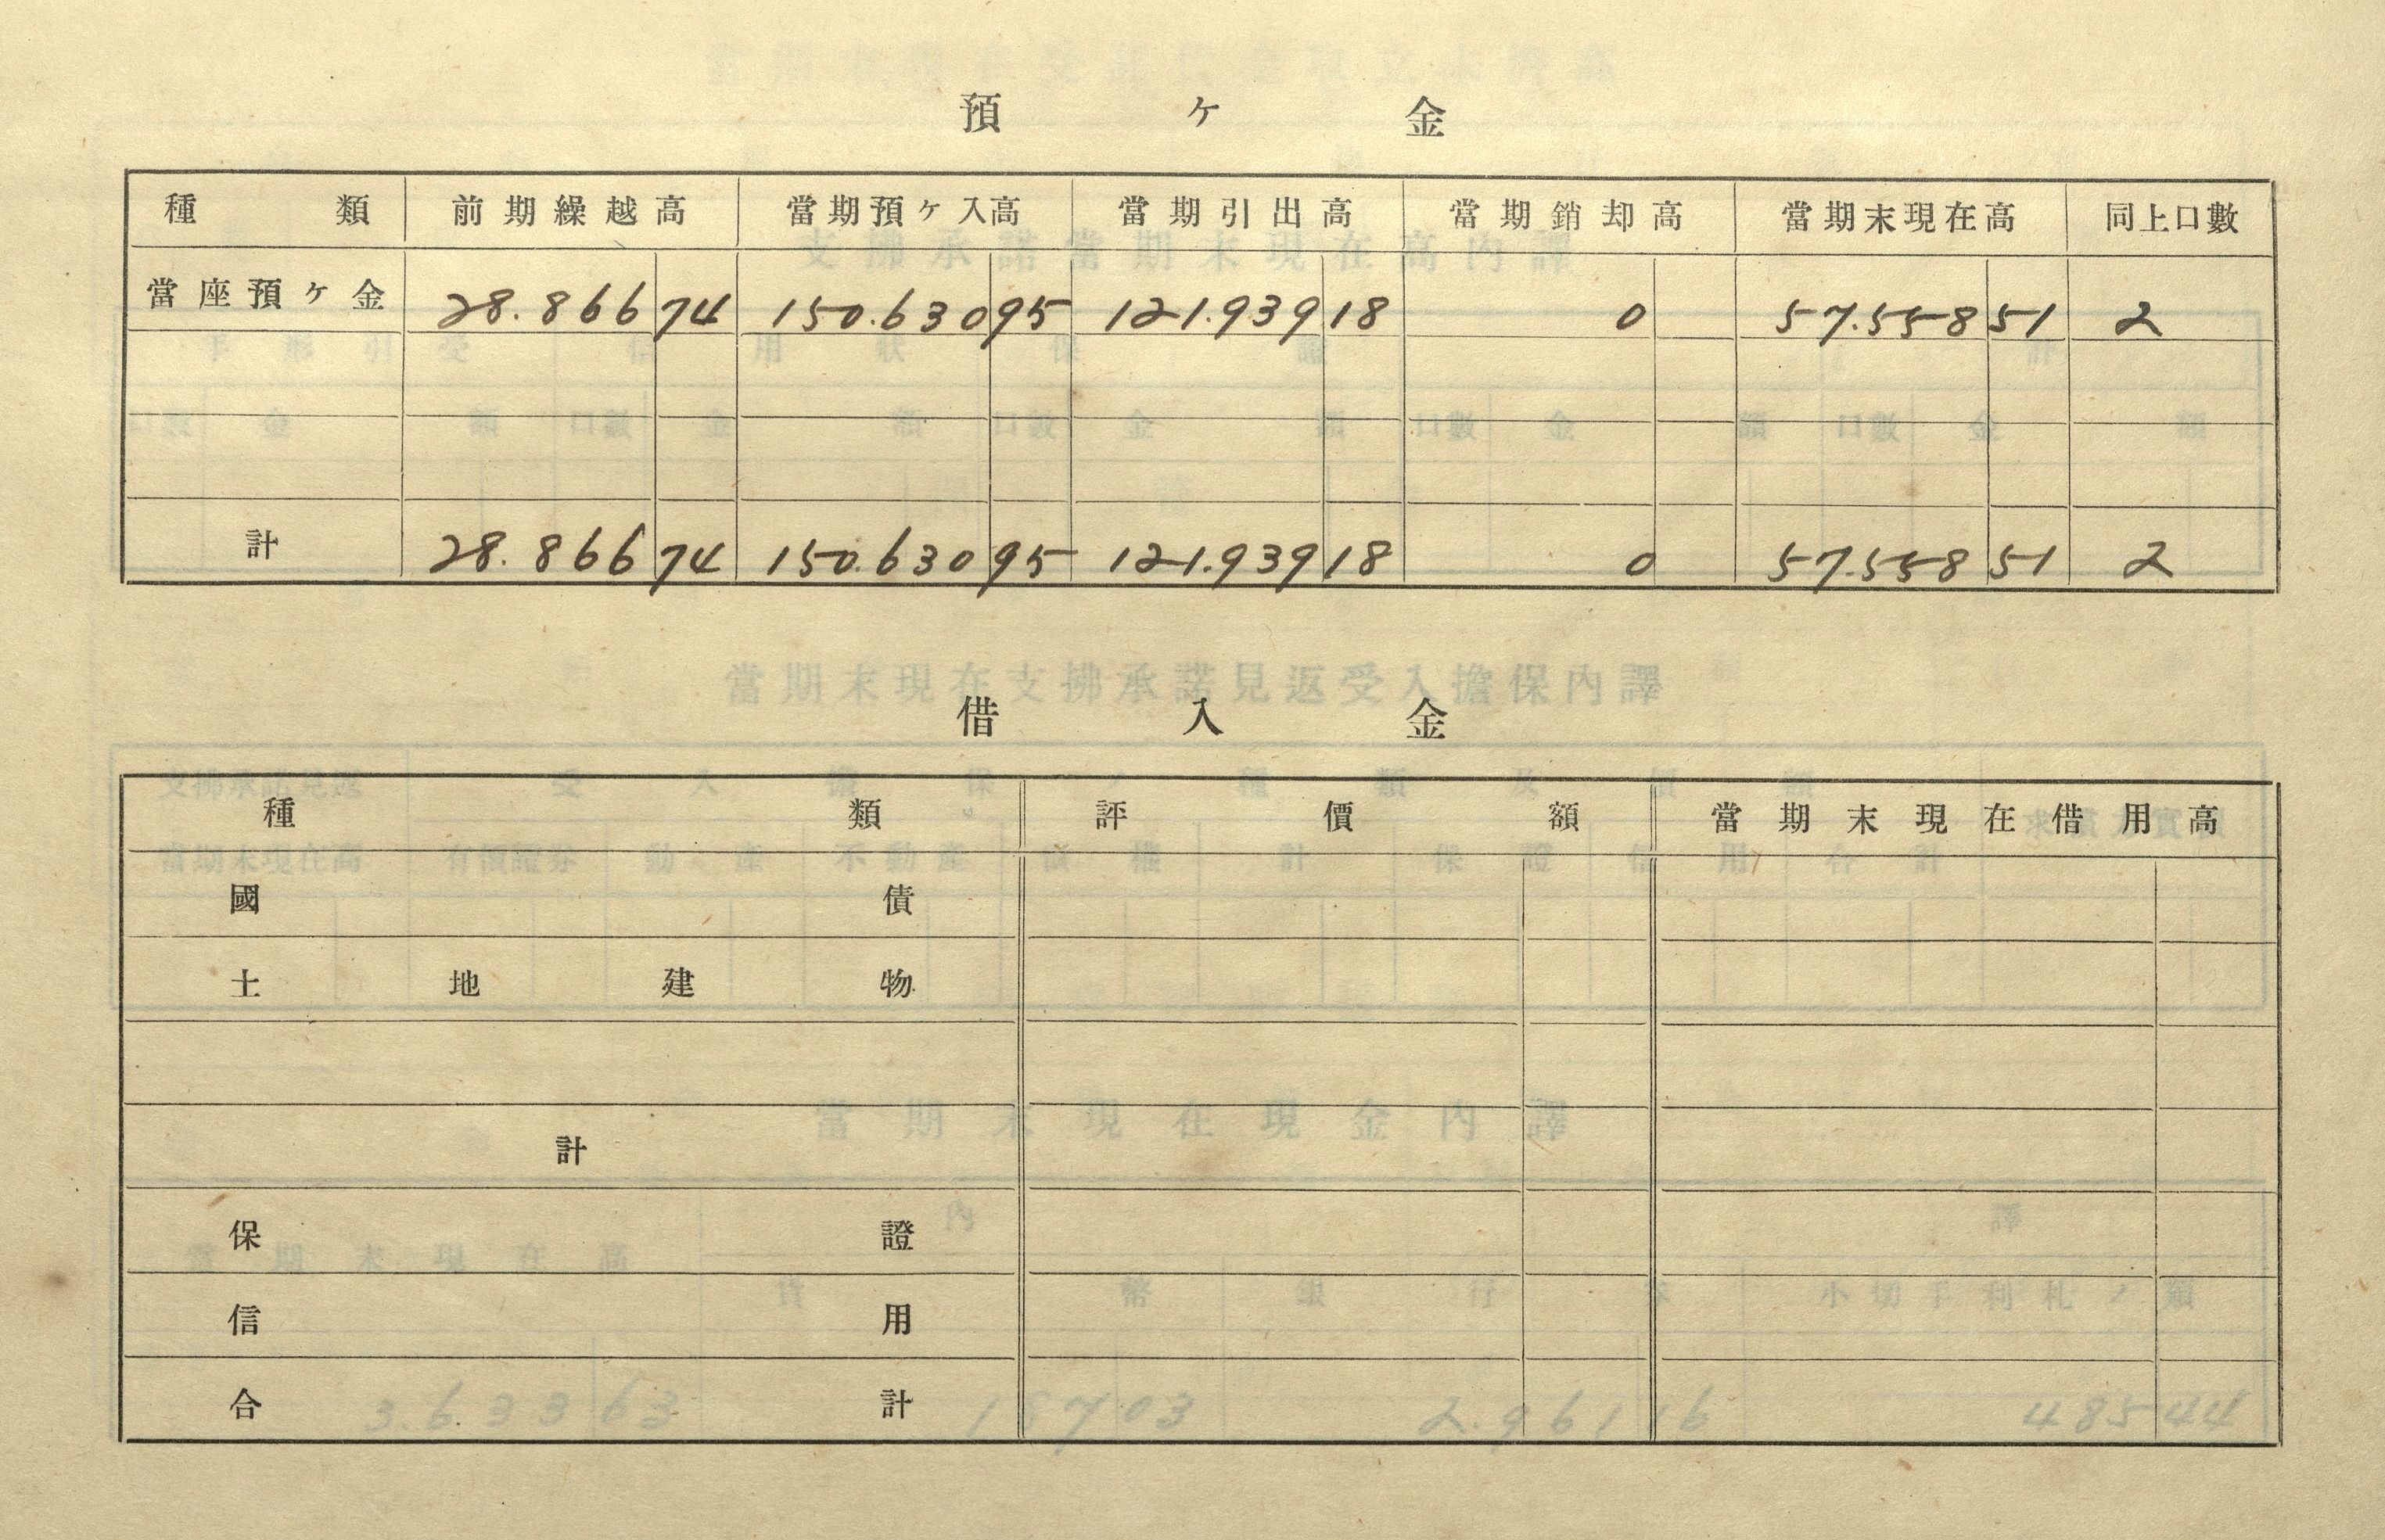 預ヶ金
種類 前期繰越高 當期預ヶ入高 當期引出高 當期銷却高 當期末現在高 同上口數
當座預ヶ金 28.866 74 150.630 95 121.939 18 0 57.558 51 2
計 28.866 74 150.630 95 121.939 18 0 57.558 51 2
借入金
種類 評價額 當期末現在借用高
國債
土地建物
計
保證
信用
合計